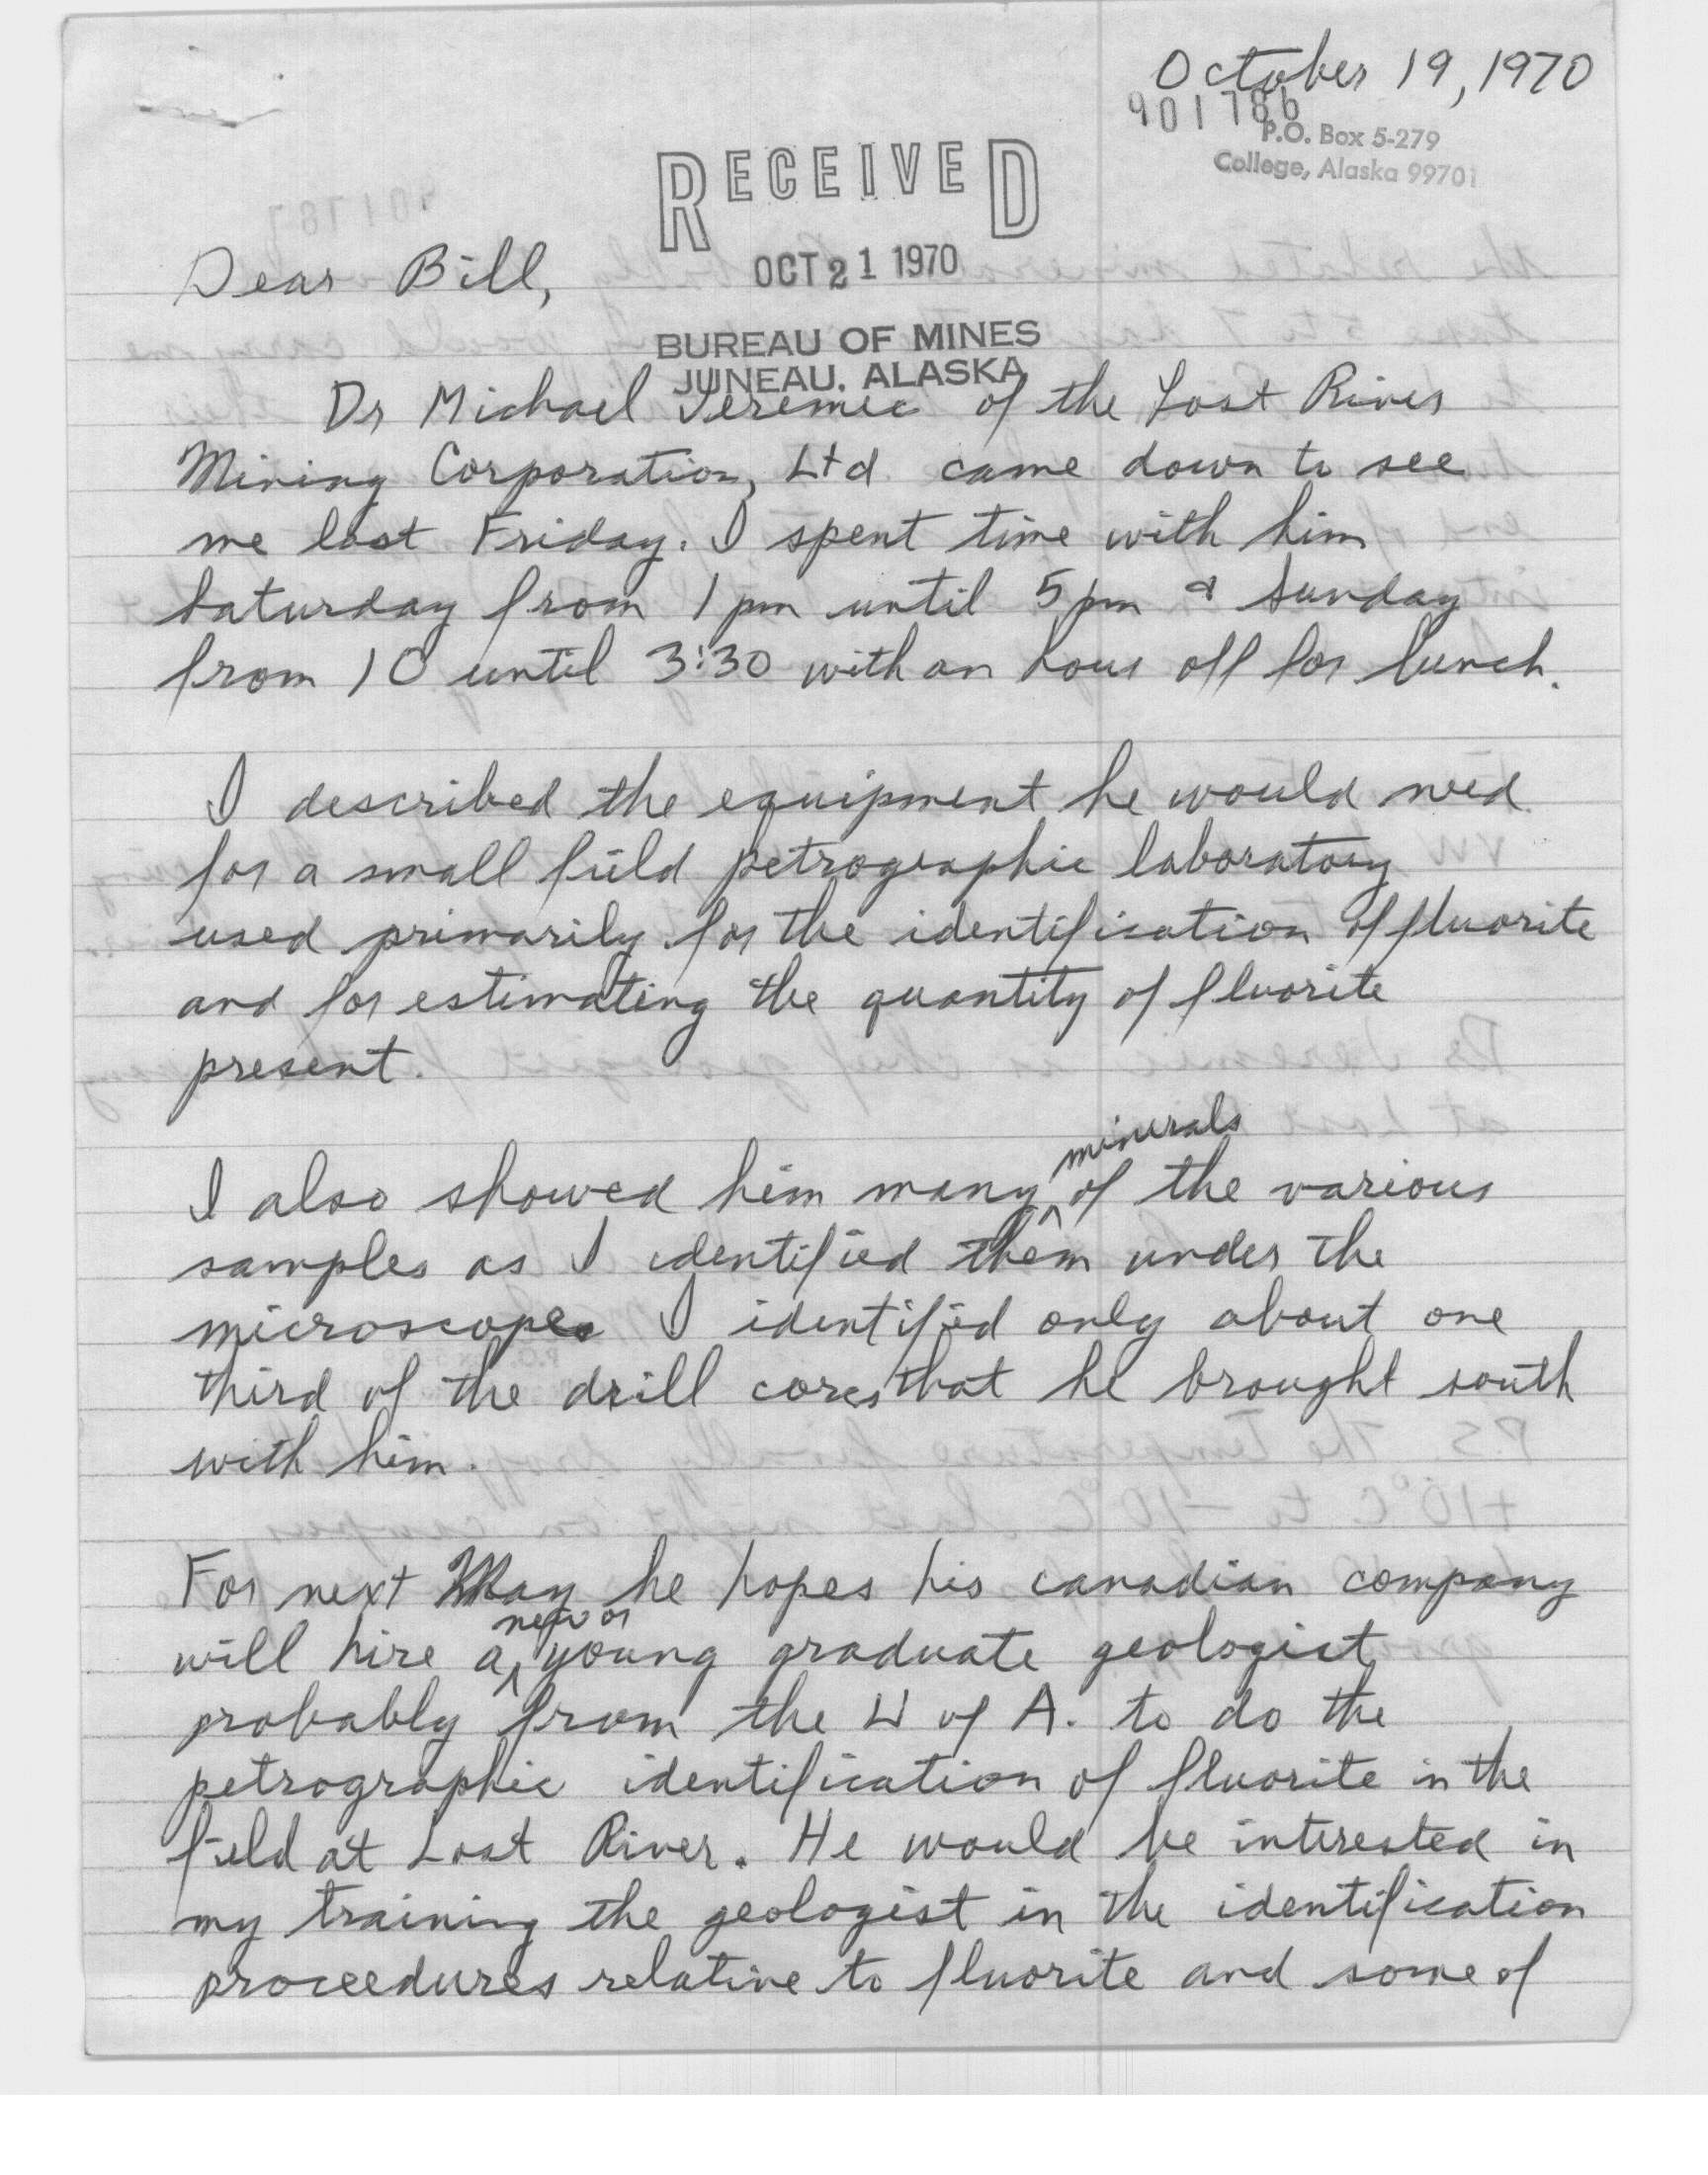 October 19, 1970
901786
P.O. Box 5-279
College, Alaska 99701
RECEIVED
OCT 21 1970
BUREAU OF MINES
JUNEAU, ALASKA
Dear Bill,
Dr Michael Jeremic of the Lost River
Mining Corporation, Ltd came down to see
me last Friday. I spent time with him
Saturday from 1 pm until 5 pm & Sunday
from 10 until 3:30 with an hour off for lunch.
I described the equipment he would need
for a small field petrographic laboratory
used primarily for the identification of fluorite
and for estimating the quantity of fluorite
present.
I also showed him many minerals of the various
samples as I identified them under the
microscope I identified only about one
third of the drill cores that he brought south
with him.
For next May he hopes his canadian company
will hire a new or young graduate geologist
probably from the U of A. to do the
petrographic identification of fluorite in the
field at Lost River. He would be interested in
my training the geologist in the identification
proceedures relative to fluorite and some of